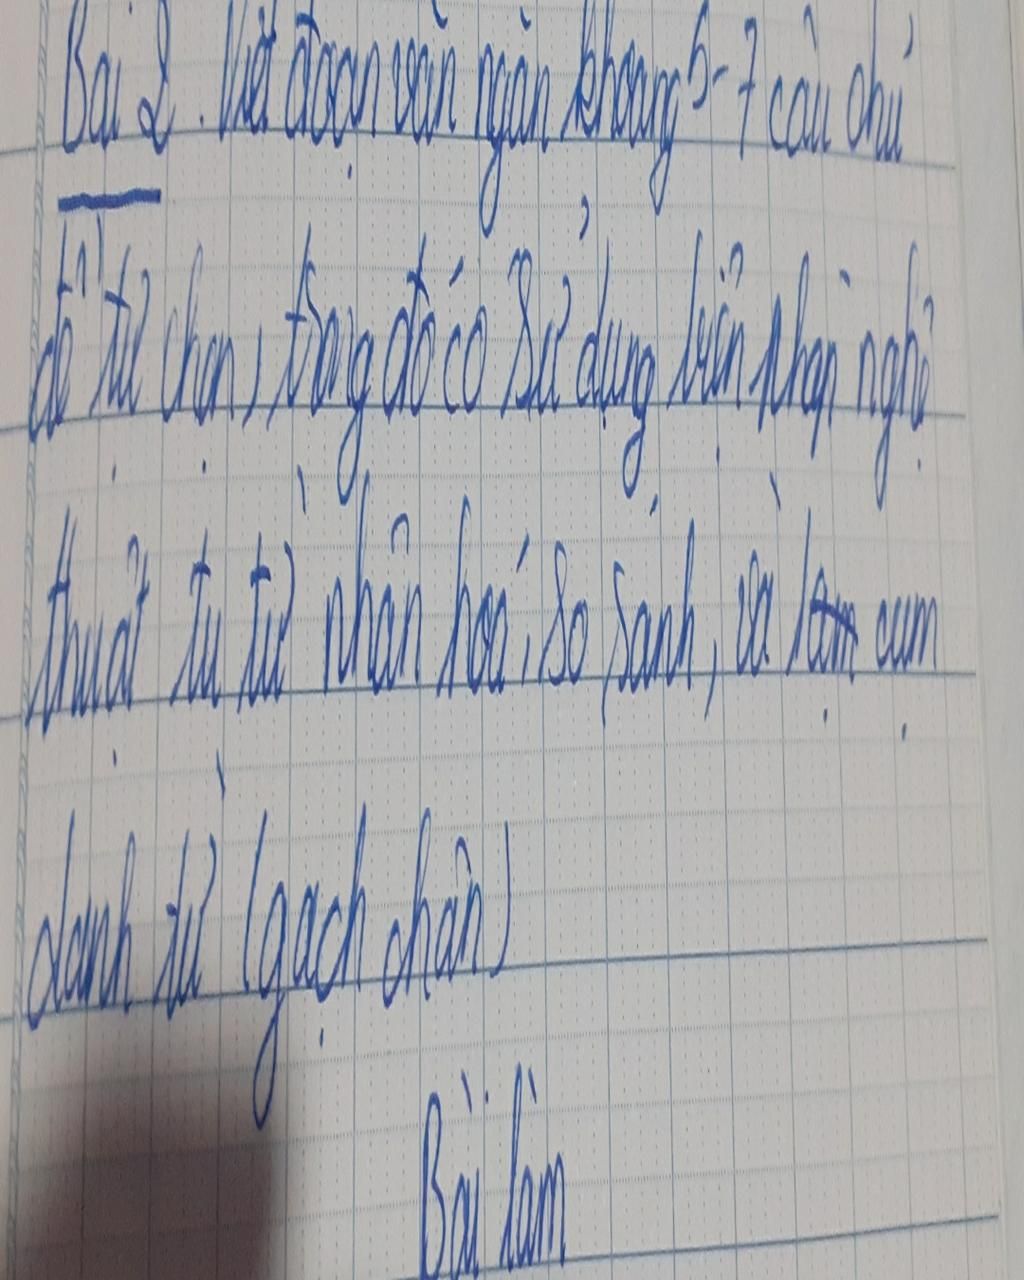 Bài 2. Viết đoạn văn ngắn khoảng 5-7 câu chủ
đề tự chọn, trong đó có sử dụng biện pháp nghệ
thuật tu từ nhân hoá, so sánh, và cụm
danh từ (gạch chân)
Bài làm